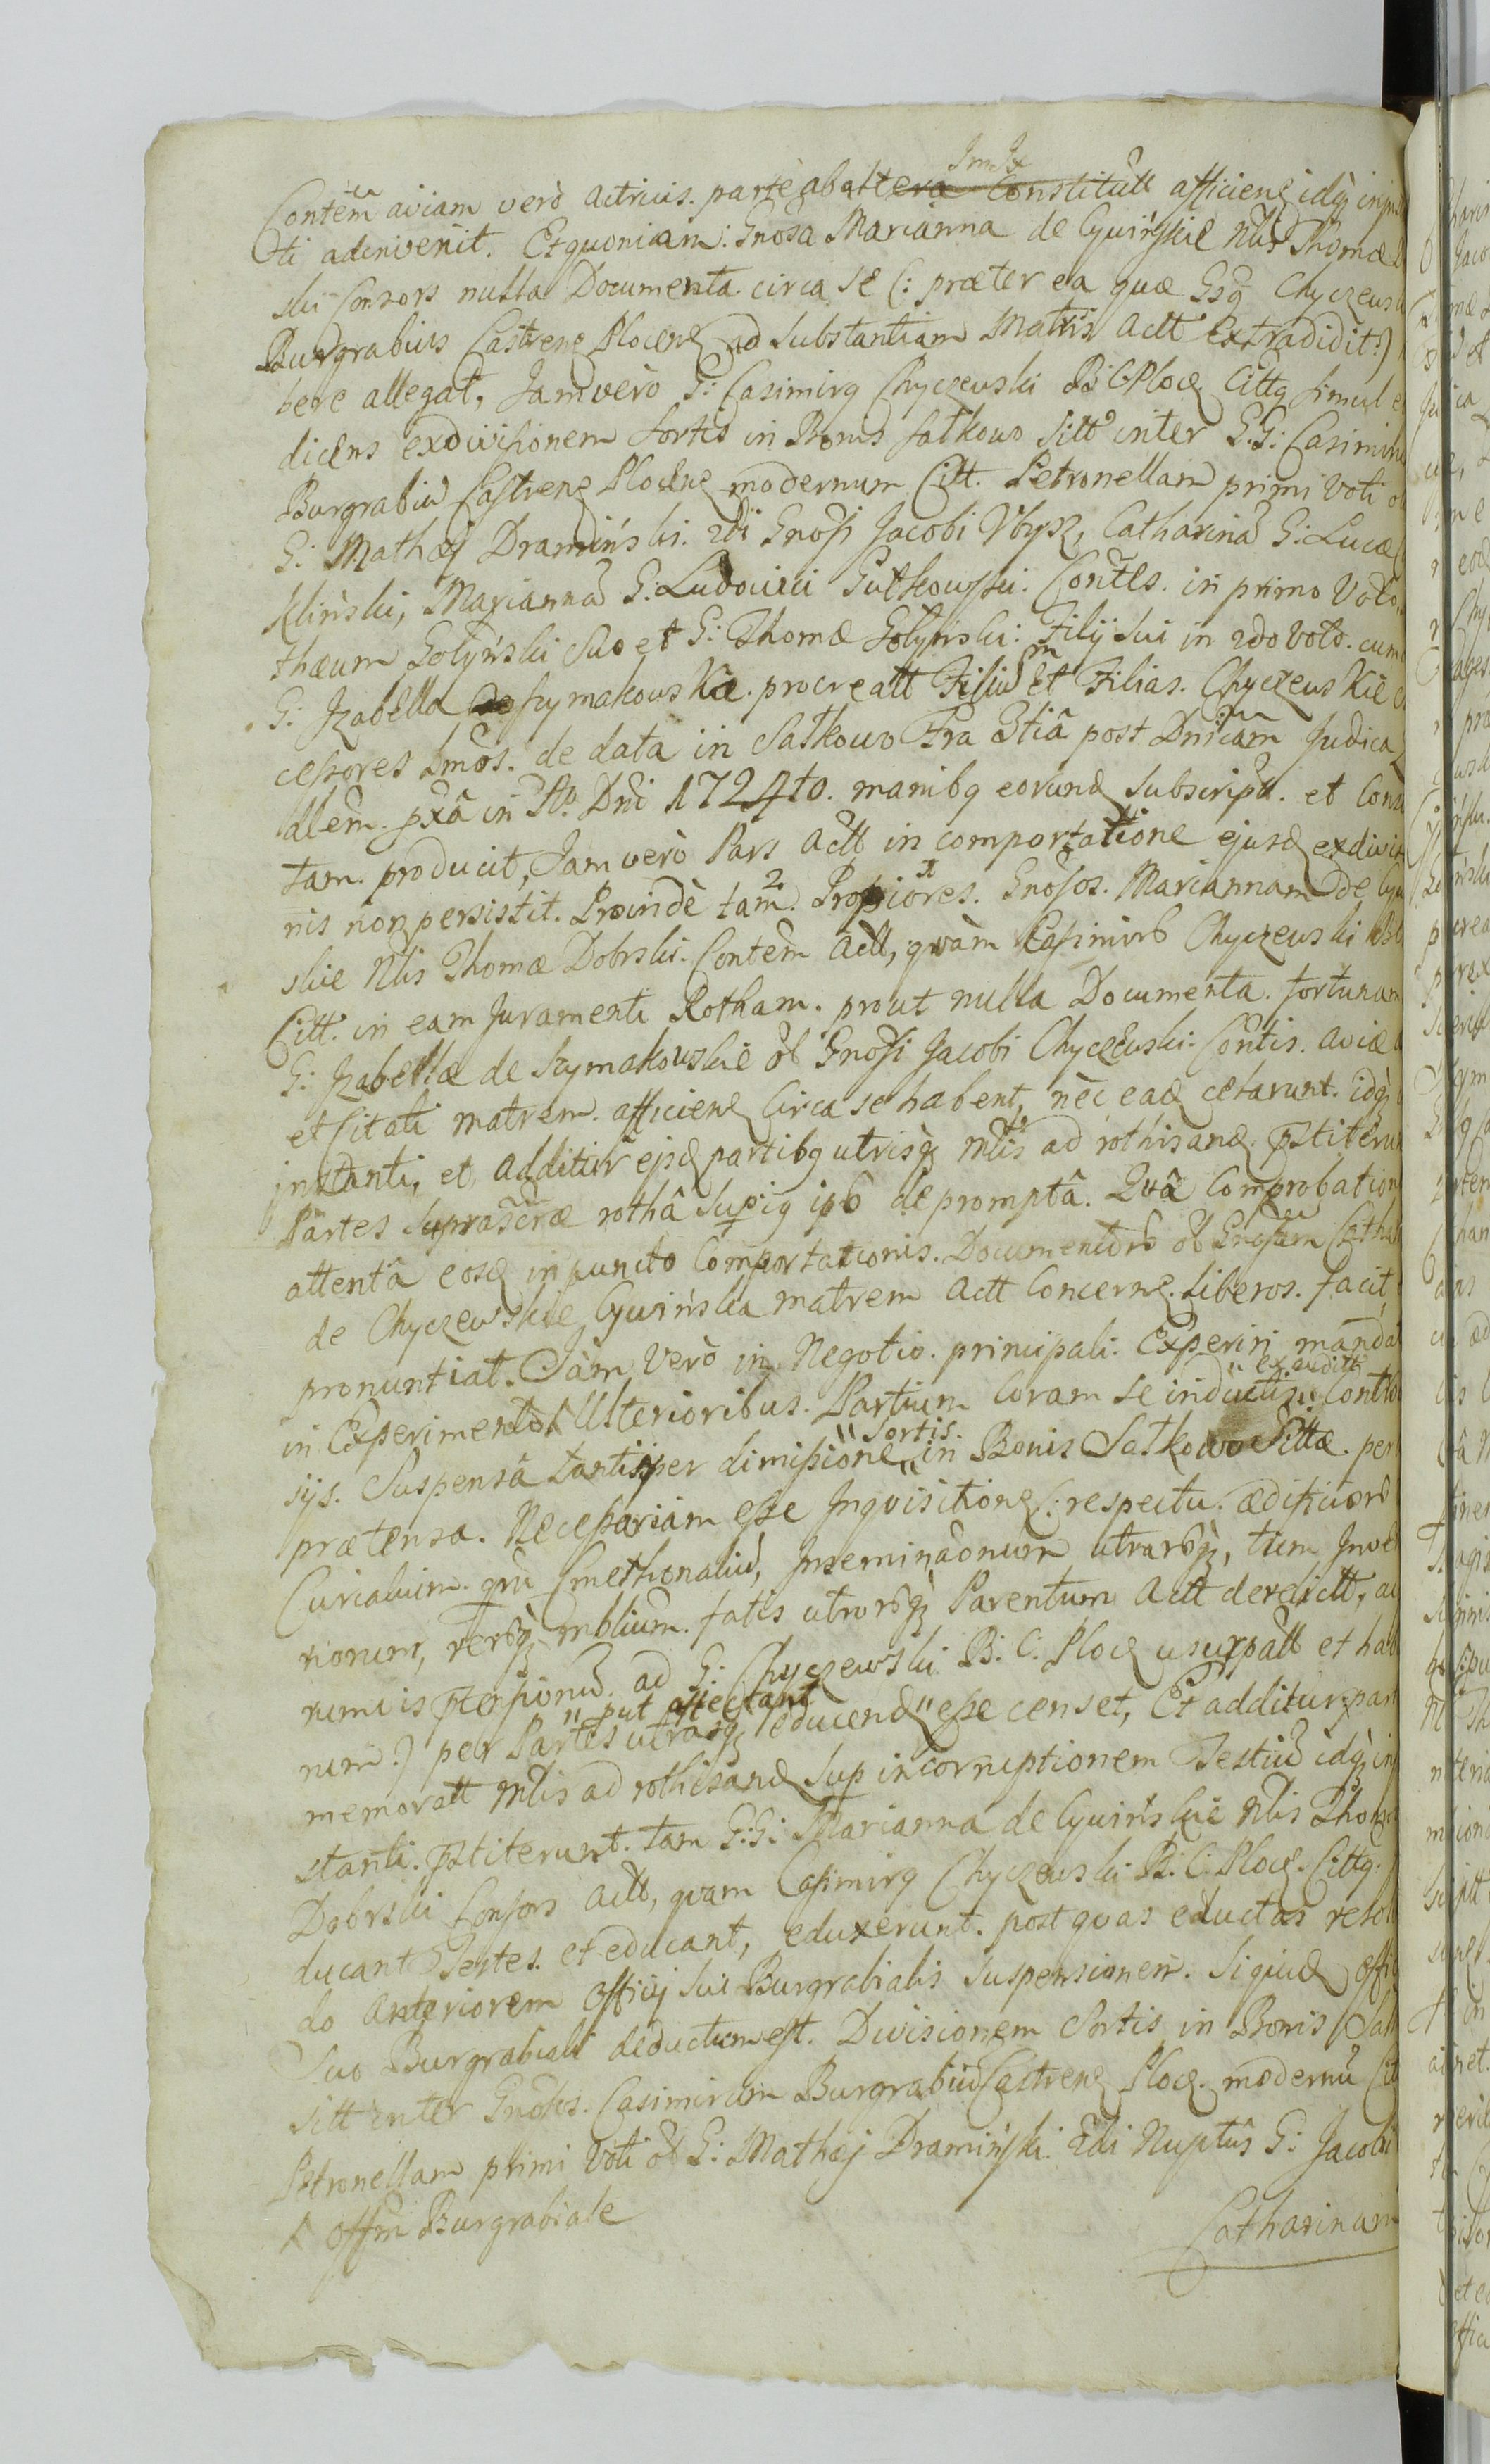 Contem aviam verò actricis. parte ab altera Constitutt afficien idq in
ti adinvenit. Et quoniam: Gnosa Marianna de Cywińskie Nlis Thomæ
skii Consors nulla Documenta circa se (: præter ea quæ Gsq Chyczews
Burgrabius Castren Plocen ad Substantiam Matris actt Extradidit:)
bere allegat, Jam verò G: Casimirq Chyczewski B: C. Ploc Cittq simul e
dicens exdivisionem sortis in Bonis Satkowo Sitt inter G.G: Casimiru
Burgrabiu Castren Plocen modernum Citt. Petronellam primi voti o
G: Mathæj Dramiński. 2di Gnosi Jacobi Ubysz, Catharina G: Lucæ
kliński, Marianna G: Ludovici Gutkowski. Contes. in primo Voto.
thæum Gołyński Suo et G: Thomæ Gołyński: Filij sui in 2do voto. cum
G: Izabella de Szymakowskie. procreatt Filiu et Filias. Chyczewskie
cessores Lmos. de data in Satkowo Fra 3tiâ post Dnicam Judica
alem. pxâ in Ao. Dni 1724to. manibq eorund subscript. et Cons
tam. producit, Jam verò Pars actt in comportatione ejusd exdivisi
nis non persistit. Proindè tam. Propiores. Gnosos. Mariannam de Cyw
skie Nlis Thomæ Dobrski. Contem actt, quàm Casimiru Chyczewski
Citt. in eam Juramenti Rotham. prout nulla Documenta. fortunam
G: Izabellæ de Szymakowskie ol Gnosi Jacobi Chyczewski. Contis. aviæ
et Citati matrem. afficien Circa se habent, nec ead celarunt. idq
instanti, et additur ejsd partibq utrisq Mlis ad rothisand. pstiterun
Partes suprascræ rothâ Supiq ipso depromptâ. Quâ Comprobatione
attentâ eosd in puncto Comportationis. Documentoru ol Gnosam Catha
de Chyczewskie Cywińska matrem actt Concern. liberos. facit
pronuntiat. Jam Verò in Negotio. principali. Experiri manda
in Experimento Ulterioribus. Partium Coram se inductis " ex auditis " Contro
sijs. Suspensa tantisper dimissione " Sortis. " in Bonis Satkowo Sittæ. per
prætensa. Necessariam esse Inquisitione (: respectu. ædificioru
Curialium. qru Cmethonaliu, Inseminaonum utraruq, tum Inve
rionum, reruq mblium. fatis utroruq Parentum actt derelictt, ac
rumvis ptensionu ad G: Chyczewski B: C: Ploc usurpatt et hab
num:) per Partes utrasq " put affectant " educend esse censet, Et additur part
memoratt Mlis ad rothisand Sup incorruptionem Testiu idq in
stanti. pstiterunt. tam G:G: Marianna de Cywińskie Nlis Thomæ
Dobrski Consors actt, quam Casimirq Chyczewski B: C: Ploc. Cittq.
ducant Testes. et educant, eduxerunt. post quas eductas resol
do anteriorem officij sui Burgrabialis suspensionem. Siquid offi
Suo Burgrabiali deductum est. Divisionem Sortis in Bonis Sat
sitt inter Gnosos. Casimirum Burgrabiu Castren Ploc. modernu Cit
Petronellam primi Voti ol G: Mathæj Dramiński. 2di Nuptus G: Jacobi
Offm Burgrabiale
Catharinam